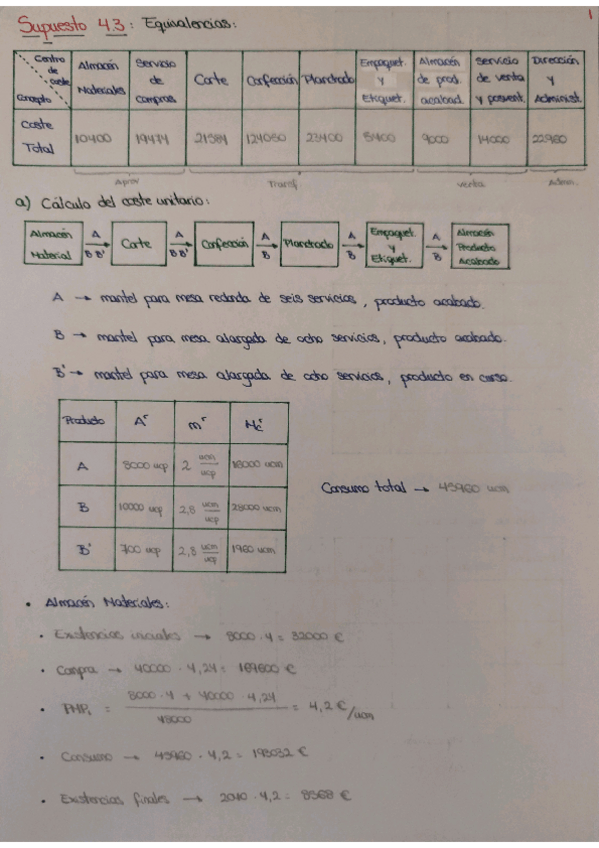 1
Supuesto 4.3: Equivalencias:
Centro de coste Almacén Materiales Servicio de compras Corte Confección Planchado Empaquet. y Etiquet. Almacén de prod. acabad. Servicio de venta y posvent. Dirección y Administ.
Concepto
Coste Total 10400 19474 21584 124050 23400 5400 9000 14000 22960
Aprov Transf venta Admin.
a) Cálculo del coste unitario:
Almacén Material A B B' Corte A B B' Confección A B Planchado A B Empaquet. y Etiquet. A B Almacén Producto Acabado
A → mantel para mesa redonda de seis servicios, producto acabado.
B → mantel para mesa alargada de ocho servicios, producto acabado.
B' → mantel para mesa alargada de ocho servicios, producto en curso.
Producto Aʳ mʳ
A 8000 ucp 2 ucm/ucp 16000 ucm
B 10000 ucp 2,8 ucm/ucp 28000 ucm
B' 700 ucp 2,8 ucm/ucp 1960 ucm
Consumo total → 45960 ucm
• Almacén Materiales:
• Existencias iniciales → 8000 · 4 = 32000 €
• Compra → 40000 · 4,24 = 169600 €
• = 8000 · 4 + 40000 · 4,24 / 48000 = 4,2 €/ucm
• Consumo → 45960 · 4,2 = 193032 €
• Existencias finales → 2040 · 4,2 = 8568 €